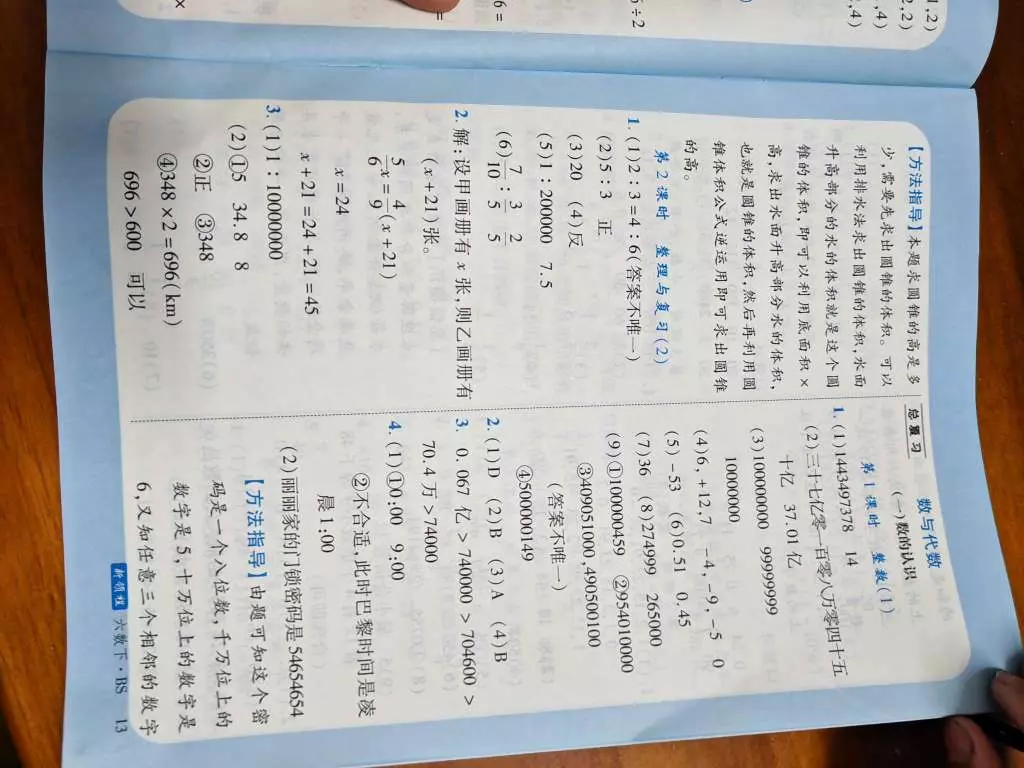 1,2)
2,2)
,4)
2,4)
)
6÷2
6=
=
×
【方法指导】本题求圆锥的高是多
少,需要先求出圆锥的体积。可以
利用排水法求出圆锥的体积,水面
升高部分的水的体积就是这个圆
锥的体积,即可以利用底面积×
高,求出水面升高部分水的体积,
也就是圆锥的体积,然后再利用圆
锥体积公式逆运用即可求出圆锥
的高。
第2课时 整理与复习(2)
1. (1)2:3=4:6(答案不唯一)
(2)5:3 正
(3)20 (4)反
(5)1:200000 7.5
(6)7/10:3/5 2/5
2. 解:设甲画册有x张,则乙画册有
(x+21)张。
5/6x=4/9(x+21)
x=24
x+21=24+21=45
3. (1)1:10000000
(2)①5 34.8 8
②正 ③348
④348×2=696(km)
696>600 可以
总复习
数与代数
(一)数的认识
第1课时 整数(1)
1. (1)144349737​8 14
(2)三十七亿零一百零八万零四十五
十亿 37.01亿
(3)100000000 99999999
10000000
(4)6,+12,7 -4,-9,-5 0
(5)-53 (6)0.51 0.45
(7)36 (8)274999 265000
(9)①1000000459 ②9540100000
③409051000,490500100
(答案不唯一)
④500000149
2. (1)D (2)B (3)A (4)B
3. 0.067亿>740000>704600>
70.4万>74000
4. (1)①0:00 9:00
②不合适,此时巴黎时间是凌
晨1:00
(2)丽丽家的门锁密码是54654654
【方法指导】由题可知这个密
码是一个八位数,千万位上的
数字是5,十万位上的数字是
6,又知任意三个相邻的数字
新领程 六数下·BS 13